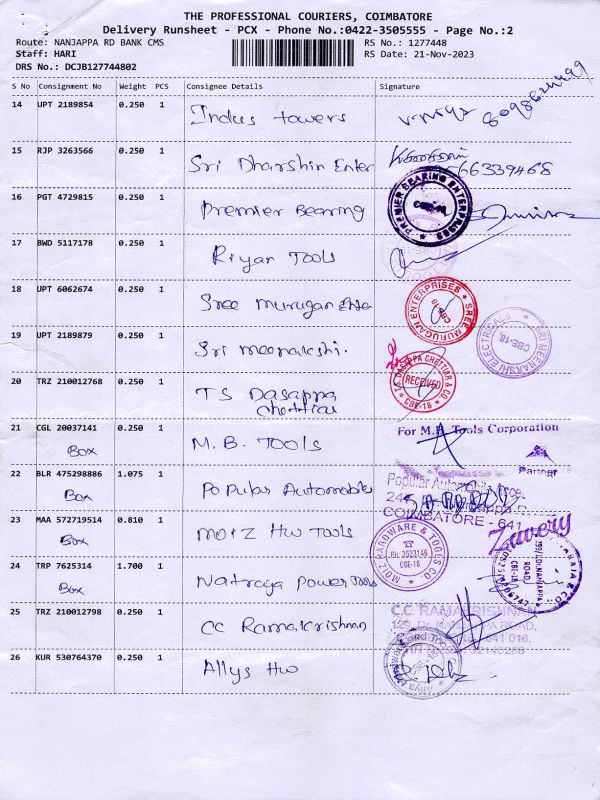 THE PROFESSIONAL COURIERS, COIMBATORE
Delivery Runsheet - PCX - Phone No.:0422-3505555 - Page No.:2
Route: NANJAPPA RD BANK CMS
RS No.: 1277448
Staff: HARI
RS Date: 21-Nov-2023
DRS No.: DCJB127744802
S No Consignment No Weight PCS Consignee Details Signature
14 UPT 2189854 0.250 1 Indus towers
15 RJP 3263566 0.250 1 Sri Dharshin Enter
16 PGT 4729815 0.250 1 Premier Bearing
PREMIER BEARING ENTERPRISES
17 BWD 5117178 0.250 1 Riyan Tools
18 UPT 6062674 0.250 1 Sree murugan Enter
SREE MURUGAN ENTERPRISES
CBE-18
19 UPT 2189879 0.250 1 Sri meenakshi.
SRI MEENAKSHI ELECTRICALS
CBE-18
20 TRZ 210012768 0.250 1 TS Dasappa
chettiar
RECEIVED
CBE-18
21 CGL 20037141 0.250 1 M.B. TOOLS
Box
For M.B. Tools Corporation
Partner
22 BLR 475298886 1.075 1 Popular Automobiles
Box
COIMBATORE - 641
23 MAA 572719514 0.810 1 Moiz Hw Tools
Box
MOIZ HARDWARE & TOOLS CO
Ph: 3523146
CBE-18
Zavery
24 TRP 7625314 1.700 1 Natraya power Tools
Box
25 TRZ 210012798 0.250 1 CC Ramakrishnan
C.C. RAMAKRISHNAN
26 KUR 530764370 0.250 1 Allys Hw